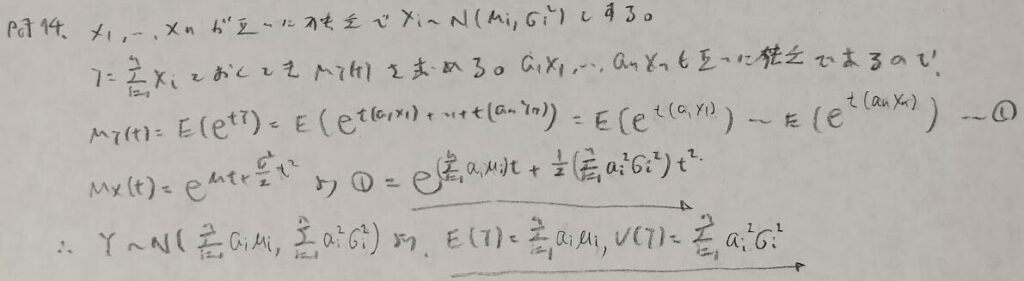 P87 14. X₁, ‥, Xn が互いに独立で Xi ~ N(μi, σi²) とする。
Y = Σ_{i=1}^{n} Xi とおくとき MY(t) を求める。a₁X₁, ‥, anXn も互いに独立であるので、
MY(t) = E(e^{tY}) = E(e^{t(a₁X₁) + ‥ + t(anXn)}) = E(e^{t(a₁X₁)}) ~ E(e^{t(anXn)}) ~ ①
MX(t) = e^{μt + σ²/2 t²} より ① = e^{(Σ_{i=1}^{n} aiμi)t + 1/2(Σ_{i=1}^{n} ai²σi²)t²}.
∴ Y ~ N(Σ_{i=1}^{n} aiμi, Σ_{i=1}^{n} ai²σi²) より. E(Y) = Σ_{i=1}^{n} aiμi, V(Y) = Σ_{i=1}^{n} ai²σi²